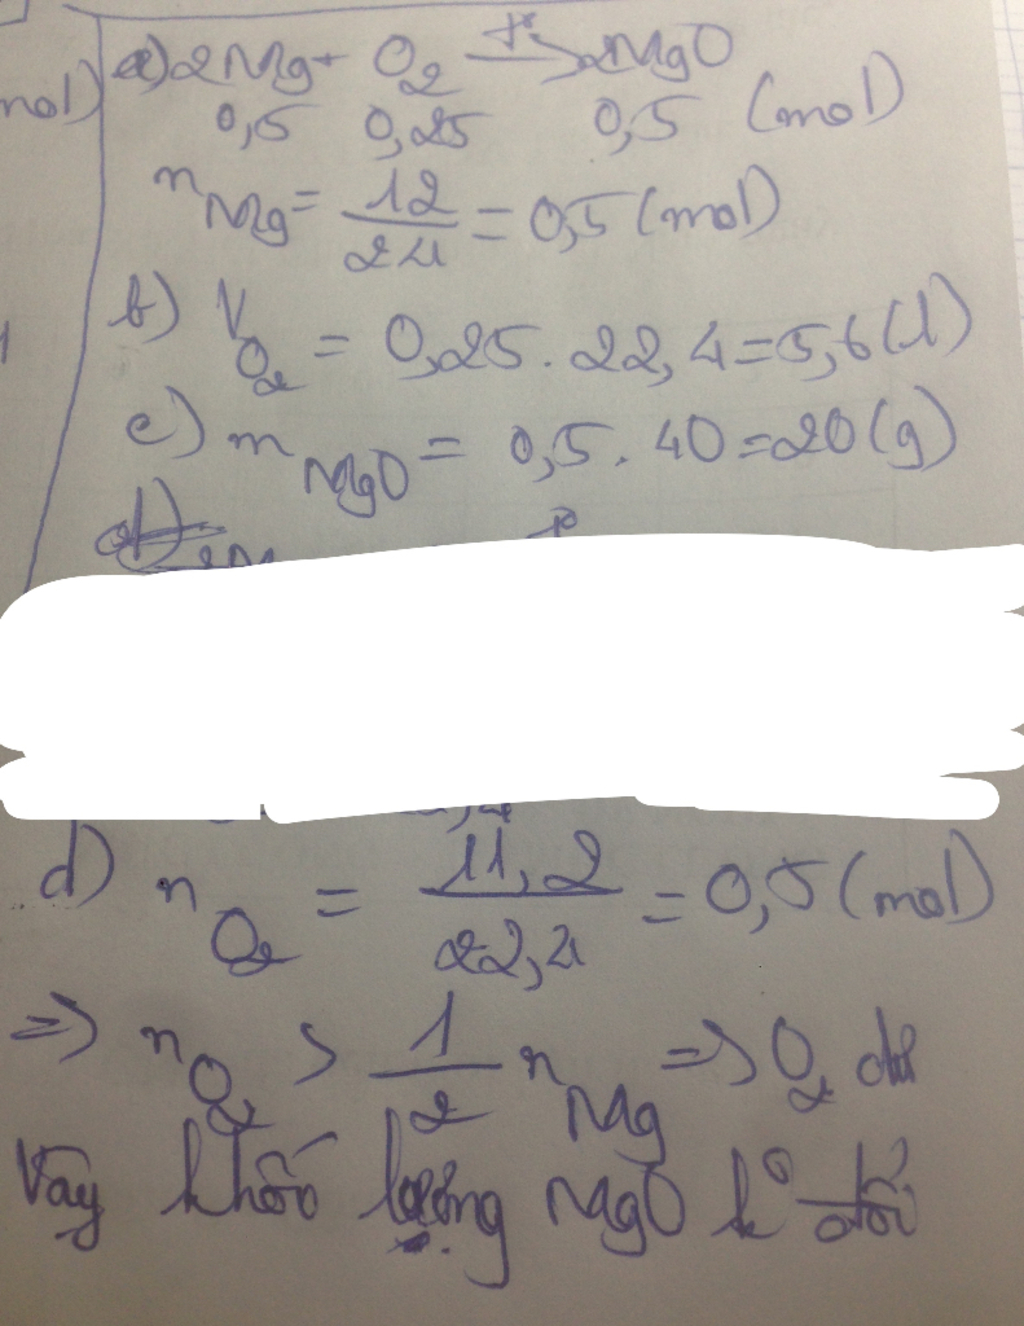 mol)
a) 2Mg + O2 t°→ 2MgO
0,5 0,25 0,5 (mol)
nMg = 12/24 = 0,5 (mol)
b) VO2 = 0,25 . 22,4 = 5,6 (l)
c) mMgO = 0,5 . 40 = 20 (g)
d) nO2 = 11,2/22,4 = 0,5 (mol)
=> nO2 > 1/2 nMg => O2 dư
Vậy khối lượng MgO k° đổi